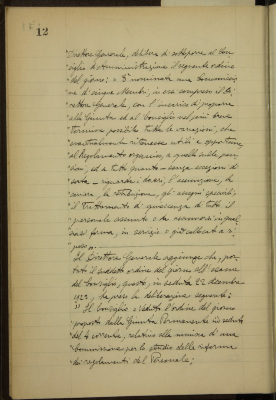 12
Direttore Generale, delibera di sottoporre al Con-
siglio di Amministrazione il seguente ordine
del giorno: È nominata una Commissio-
ne di cinque Membri, in essa compreso il Di-
rettore Generale, con l'incarico di proporre
alla Giunta ed al Consiglio nel più breve
termine possibile tutte le variazioni, che
eventualmente ritenesse utili e opportune
al Regolamento organico, a quello sulle pen-
sioni, ed a tutto quanto - senza eccezioni di
sorta - riguarda i ruoli, l'assunzione, la
carriera, la situazione, gli assegni speciali,
il trattamento di quiescenza di tutto il
personale assunto o da assumersi in qual-
siasi forma, in servizio o già collocato a ri-
poso".
Il Direttore Generale aggiunge che, por-
tato il suddetto ordine del giorno all'esame
del Consiglio, questo, in seduta 22 dicembre
, ha preso la deliberazione seguente:
"Il Consiglio, veduto l'ordine del giorno
proposto dalla Giunta Permanente in seduta
del corrente, relativo alla nomina di una
Commissione per lo studio delle riforme
dei regolamenti del Personale;